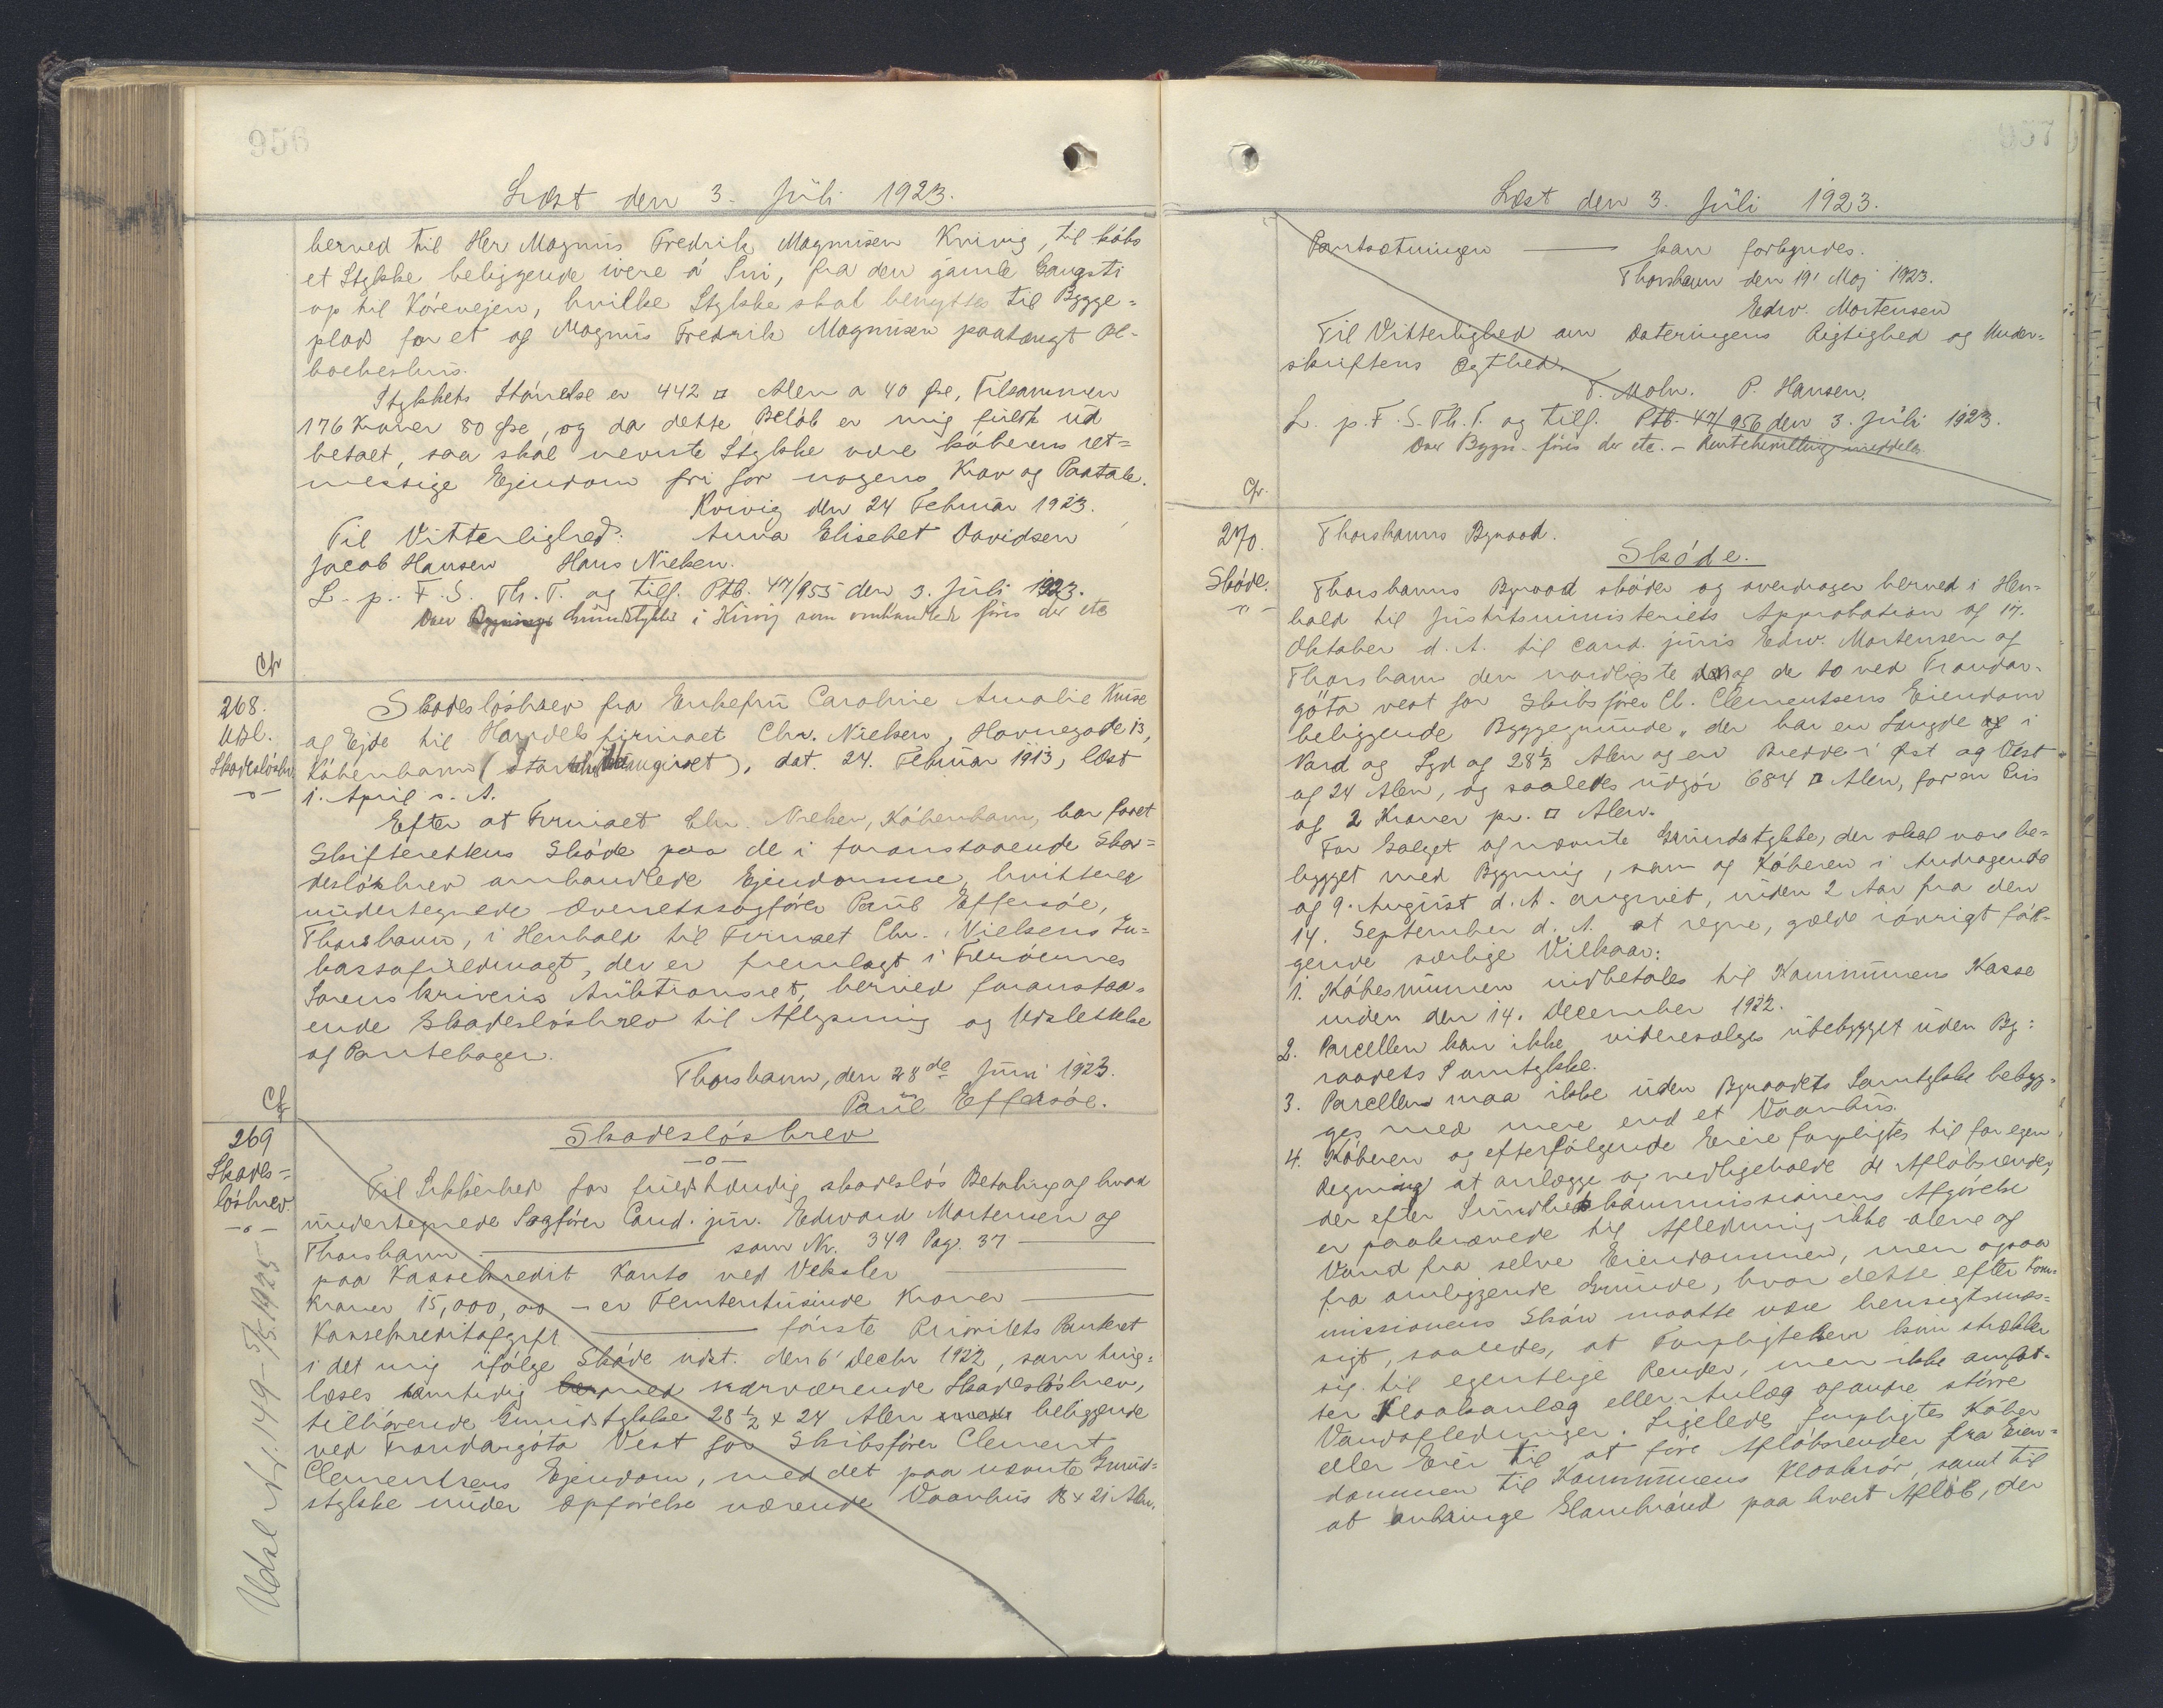 956
Læst den 3. Júli 1923.
herved til Her Magnus Fredrik Magnusen Kvivig, til købs
et Stykke beliggende ivere á Sni, fra den gamle Gangsti
op til Kørevejen, hvilke Stykke skal benyttes til Bygge=
plads for et af Magnus Fredrik Magnusen paatængt
boelseshus.
Stykkets Størrelse er 442 □ Alen a 40 Øre, Tilsammen
176 Kroner 80 Øre, og da dette Beløb er mig fuldt ud
betalt, saa skal nevnte Stykke være køberens ret=
messige Ejendom fri for nogens Krav og Paatale.
Kvivig den 24 Februar 1923.
Til Vitterlighed: Anna Elisebet Davidsen
Jacob Hansen Hans Nielsen.
L. p. F. S. Th. T. og tilf. Ptb. 47/955 den 3. Juli 1923.
Over Grundstykke i Kvivig som omhandlet føres der etc
Cfr
268.
Udsl.
Skadesløsbr.
Skadesløsbrev fra Enkefru Caroline Amalie Kruse
af Ejde til Handelsfirmaet Chr. Nielsen, Havnegade 13,
København, dat. 24. Februar 1913, læst
1. April s. A.
Efter at Firmaet Chr. Nielsen, København, har faaet
Skifterettens Skøde paa de i foranstaaende Ska=
desløsbrev omhandlede Ejendomme, kvitterer
undertegnede Overretssagfører Paul Effersøe,
Thorshavn, i Henhold til Firmaet Chr. Nielsens In=
kassofuldmagt, der er fremlagt i Færøernes
Sorenskriveris Auktionsret, herved foranstaa=
ende Skadesløsbrev til Aflysning og Udslettelse
af Pantebogen.
Thorshavn, den 28de Juni 1923.
Paul Effersøe.
Cfr
269
Skades=
løsbrev.
Udsl. Nr. 149 - 5/5. 1925
Skadesløsbrev
Til Sikkerhed for fuldstændig skadesløs Betaling af hvad
undertegnede Sagfører Cand. jur. Edward Mortensen af
Thorshavn som Nr. 349 Pag. 37
paa Kassekredit Konto ved Veksler
Kroner 15,000,00 - er Femtentusinde Kroner
Kassekreditafgift første Prioritets Panteret
i det mig ifølge Skøde udst. den 6' Decbr 1922, som ting=
læses samtidig med nærværende Skadesløsbrev,
tilhørende Grundstykke 28 1/2 x 24 Alen beliggende
ved Frandargøta Vest for Skibsfører Clement
Clementsens Ejendom, med det paa nævnte Grund=
stykke under Opførelse værende Vaanhus 18 x 21 Alen.
957
Læst den 3. Júli 1923.
Pantsætningen kan forbyndes.
Thorshavn den 19' Maj 1923.
Edw. Mortensen
Til Vitterlighed om Dateringens Rigtighed og Under=
skriftens Ægthed.
T. Mohr. P. Hansen.
L. p. F. S. Th. T. og tilf. Ptb. 47/956 den 3. Júli 1923.
Over Bygn. føres der etc. - Rentehemling meddeles.
Cfr.
270.
Skøde.
Thorshavns Byraad.
Skøde.
Thorshavns Byraad skøder og overdrager herved i Hen=
hold til Justitsministeriets Approbation af 17.
Oktober d. A. til cand. juris Edw. Mortensen af
Thorshavn den nordligste del af de to ved Frandar=
gøta vest for Skibsfører Cl. Clementsens Eiendom
beliggende Byggegrunde, der har en Længde af i
Nord og Syd af 28 1/2 Alen og en Bredde i Øst og Vest
af 24 Alen, og saaledes udgør 684 □ Alen, for en Pris
af 2 Kroner pr. □ Alen.
For Salget af nævnte Grundstykke, der skal være be=
bygget med Bygning, som af Køberen i Andragende
af 9. August d. A. angivet, inden 2 Aar fra den
14. September d. A. at regne, gælde iøvrigt føl=
gende særlige Vilkaar:
1. Købesummen indbetales til Kommunens Kasse
inden den 14. December 1922.
2. Parcellen kan ikke videresælges ubebygget uden By=
raadets Samtykke.
3. Parcellen maa ikke uden Byraadets Samtykke bebyg=
ges med mere end et Vaanhus.
4. Køberen og efterfølgende Eiere forpligtes til for egen
Regning at anlægge og vedligeholde de Afløbsrender,
der efter Sundhedskommissionens Afgørelse
er paakrævede til Afledning ikke alene af
Vand fra selve Eiendommen, men ogsaa
fra omliggende Grunde, hvor dette efter Kom=
missionens Skøn maatte være hensigtsmæs=
sigt, saaledes, at Forpligtelsen kun strækker
sig til egentlige Render, men ikke omfat=
ter Kloakanlæg eller Anlæg af andre større
Vandafledninger. Ligeledes forpligtes Køber
eller Eier til at føre Afløbsrender fra Eien=
dommen til Kommunens Kloakrør, samt til
at anbringe Slambrønd paa hvert Afløb, der